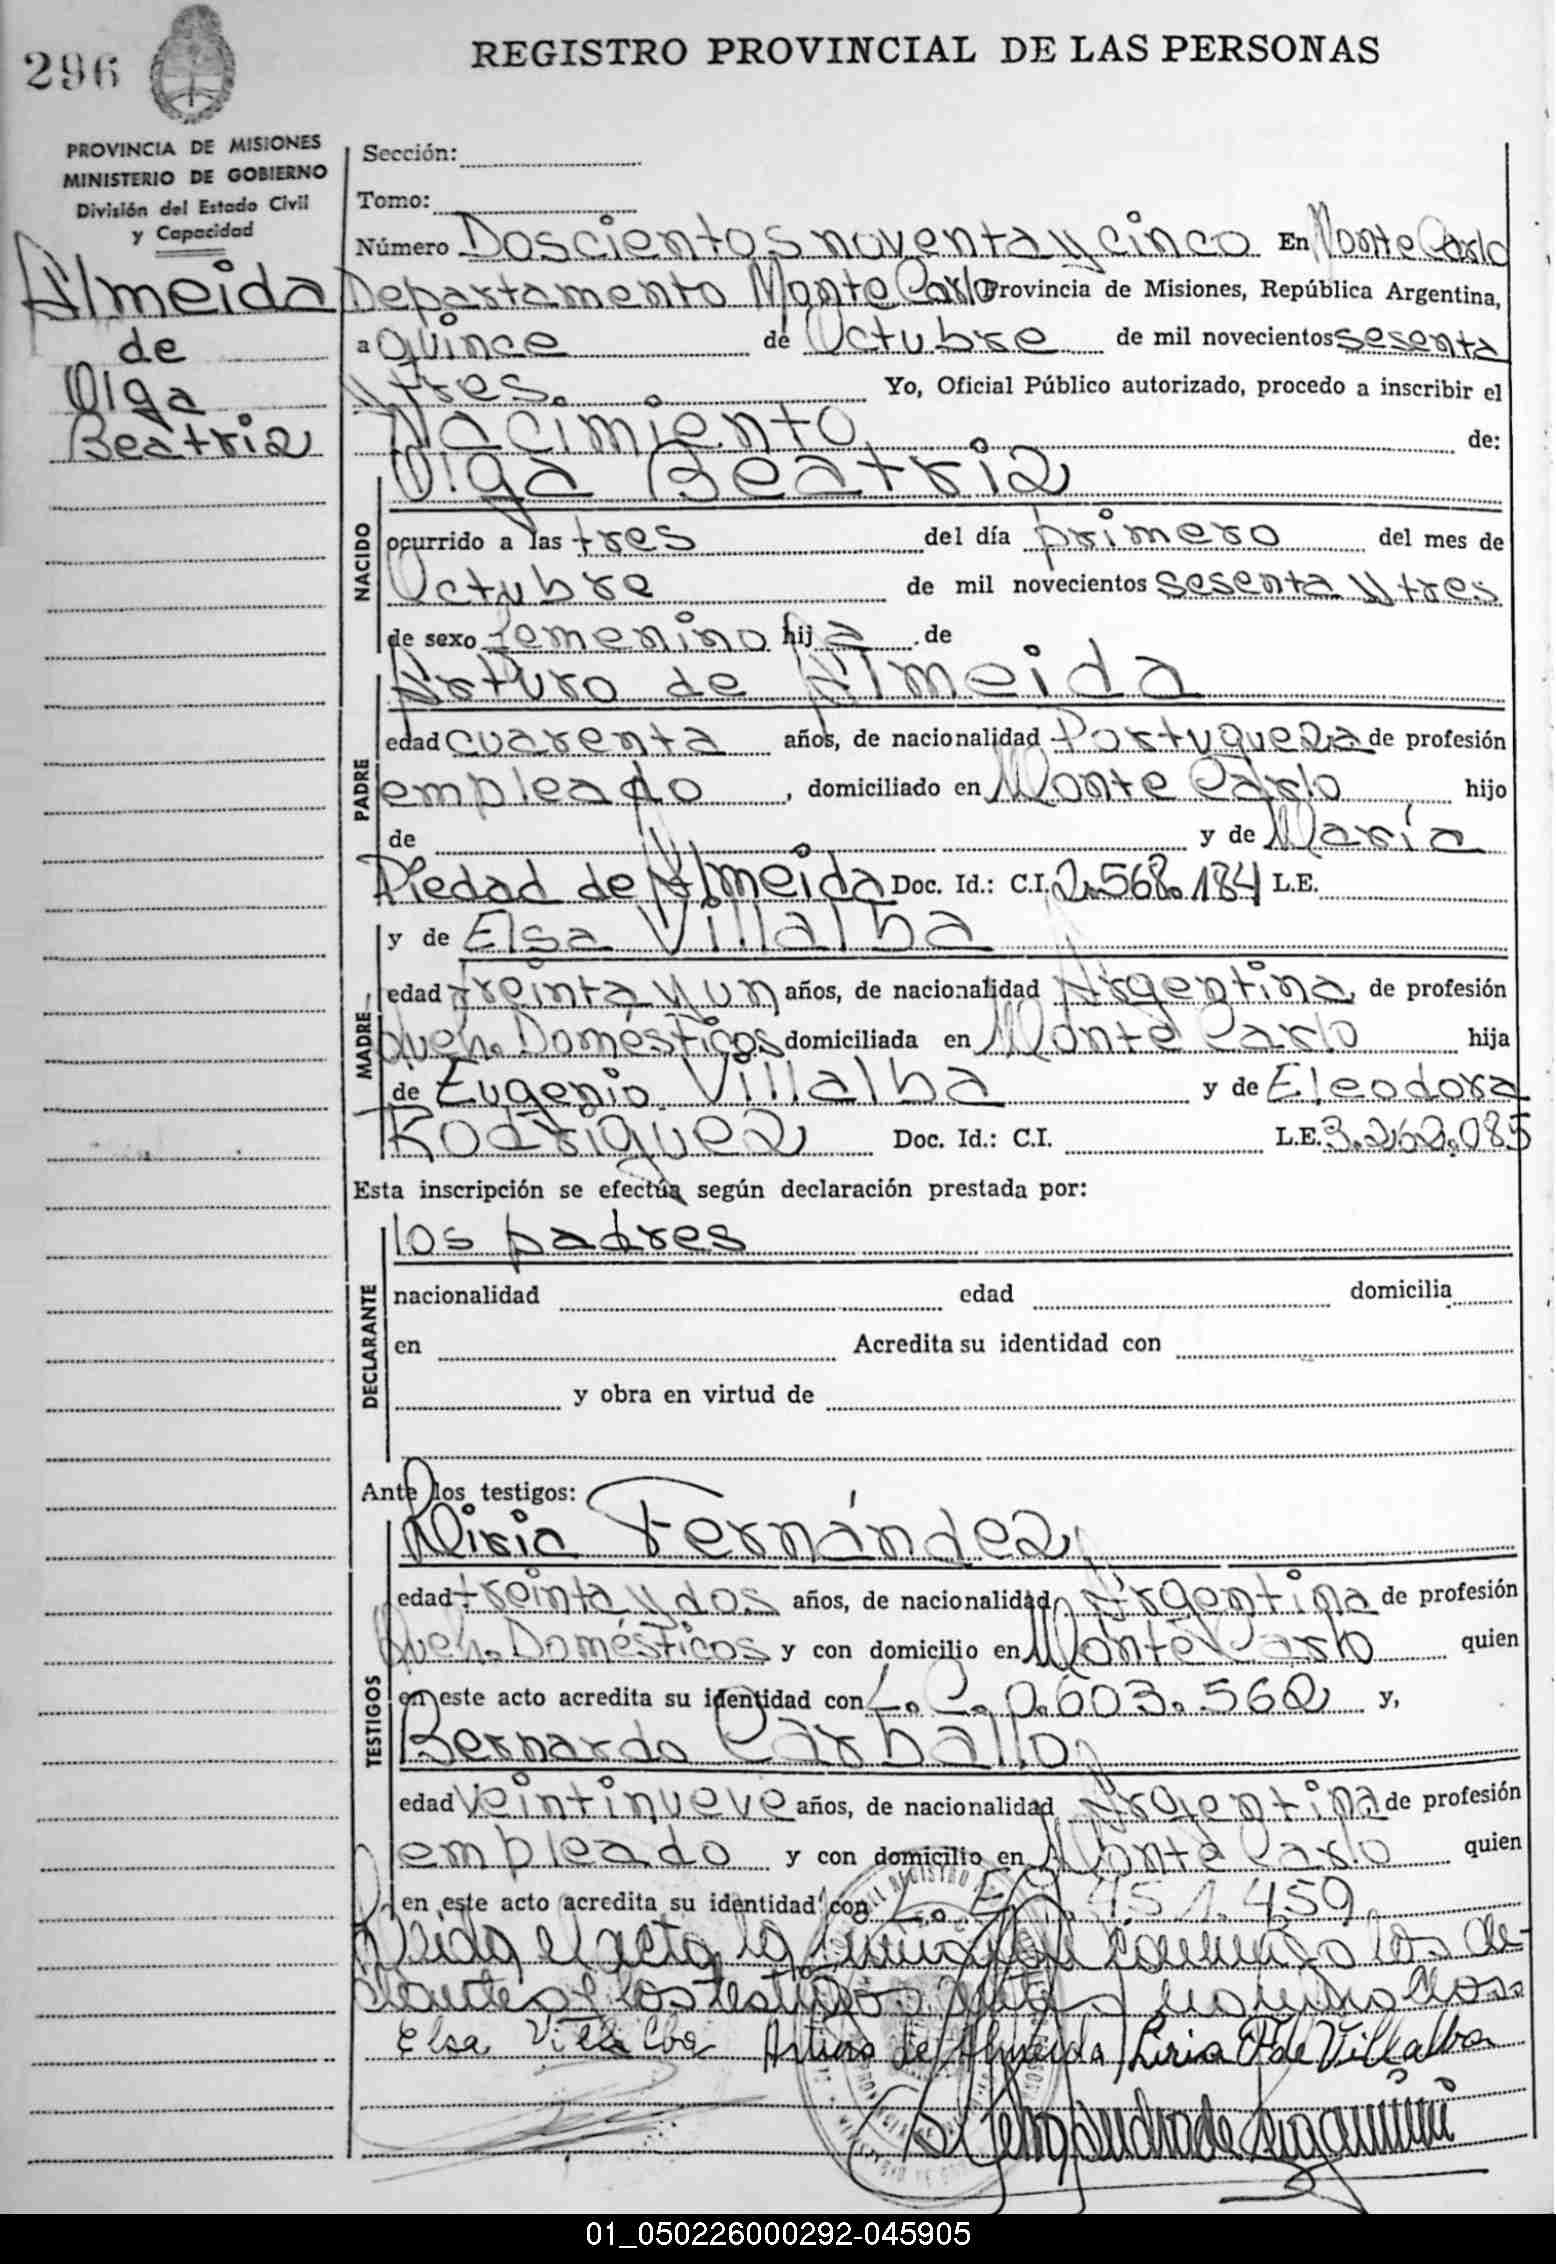 296
REGISTRO PROVINCIAL DE LAS PERSONAS
PROVINCIA DE MISIONES
MINISTERIO DE GOBIERNO
División del Estado Civil
y Capacidad
Almeida
de
Olga
Beatriz
Sección:
Tomo:
Número Doscientos noventa y cinco En Monte Carlo
Departamento Monte Carlo Provincia de Misiones, República Argentina,
a quince de Octubre de mil novecientos sesenta
y tres. Yo, Oficial Público autorizado, procedo a inscribir el
Nacimiento de:
NACIDO
Olga Beatriz
ocurrido a las tres del día primero del mes de
Octubre de mil novecientos sesenta y tres
de sexo femenino hija de
PADRE
Arturo de Almeida
edad cuarenta años, de nacionalidad Portugueza de profesión
empleado, domiciliado en Monte Carlo hijo
de y de María
Piedad de Almeida Doc. Id.: C.I. 2.568.184 L.E.
MADRE
y de Elsa Villalba
edad treinta y un años, de nacionalidad Argentina, de profesión
Queh. Domésticos domiciliada en Monte Carlo hija
de Eugenio Villalba y de Eleodora
Rodriguez Doc. Id.: C.I. L.E. 3.262.085
Esta inscripción se efectúa según declaración prestada por:
DECLARANTE
los padres
nacionalidad edad domicilia
en Acredita su identidad con
y obra en virtud de
Ante los testigos:
TESTIGOS
Liria Fernández,
edad treinta y dos años, de nacionalidad Argentina de profesión
Queh. Domésticos y con domicilio en Monte Carlo quien
en este acto acredita su identidad con L. C. 0.603.562 y,
Bernardo Carballo,
edad veintinueve años, de nacionalidad Argentina, de profesión
empleado y con domicilio en Monte Carlo quien
en este acto acredita su identidad con L. E. 451.459
Leida el acta la los de-
los testigos
Elsa Villalba Arturo de Almeida Liria F de Villalba
01_050226000292-045905